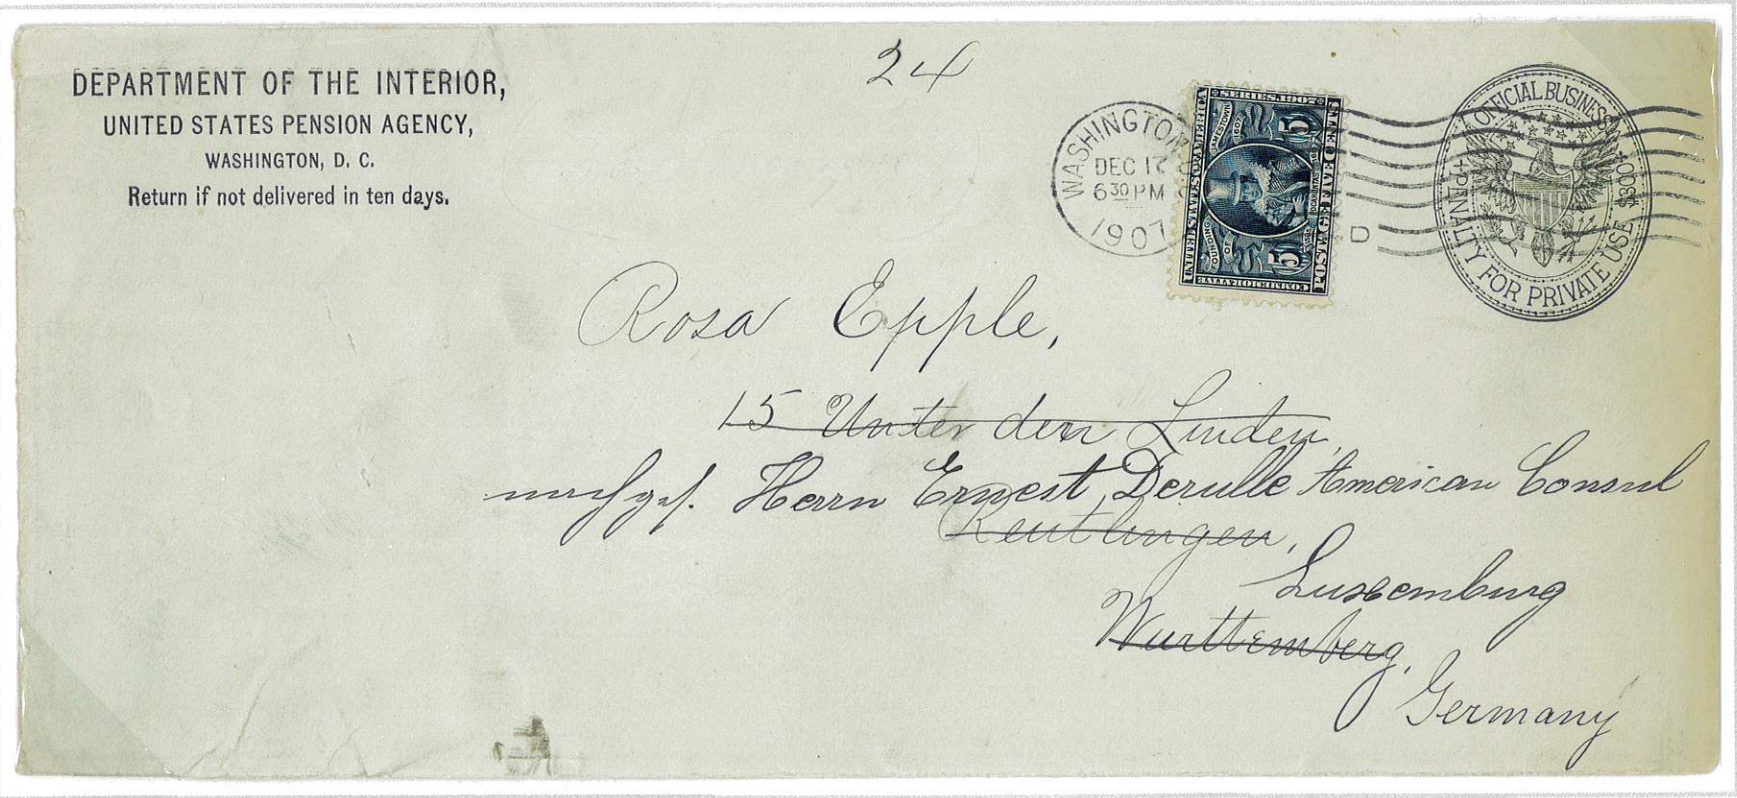 DEPARTMENT OF THE INTERIOR,
UNITED STATES PENSION AGENCY,
WASHINGTON, D. C.
Return if not delivered in ten days.
24
WASHINGTON
DEC 17
6 30 PM
1907
D
SERIES 1907
UNITED STATES OF AMERICA
JAMESTOWN
1607
FOUNDING OF
5
5
COMMEMORATIVE
POSTAGE
OFFICIAL BUSINESS
PENALTY FOR PRIVATE USE $300
Rosa Epple,
15 Unter den Linden,
nachges. Herrn Ernest Derulle American Consul
Reutlingen,
Luxemburg
Wurttemberg,
Germany